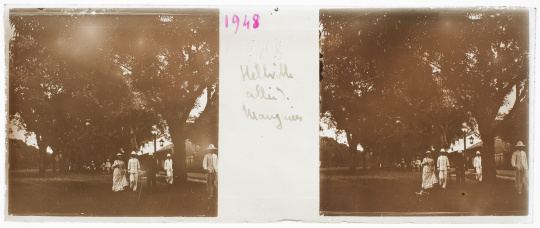 1948
Hellville
allée d.
Manguiers